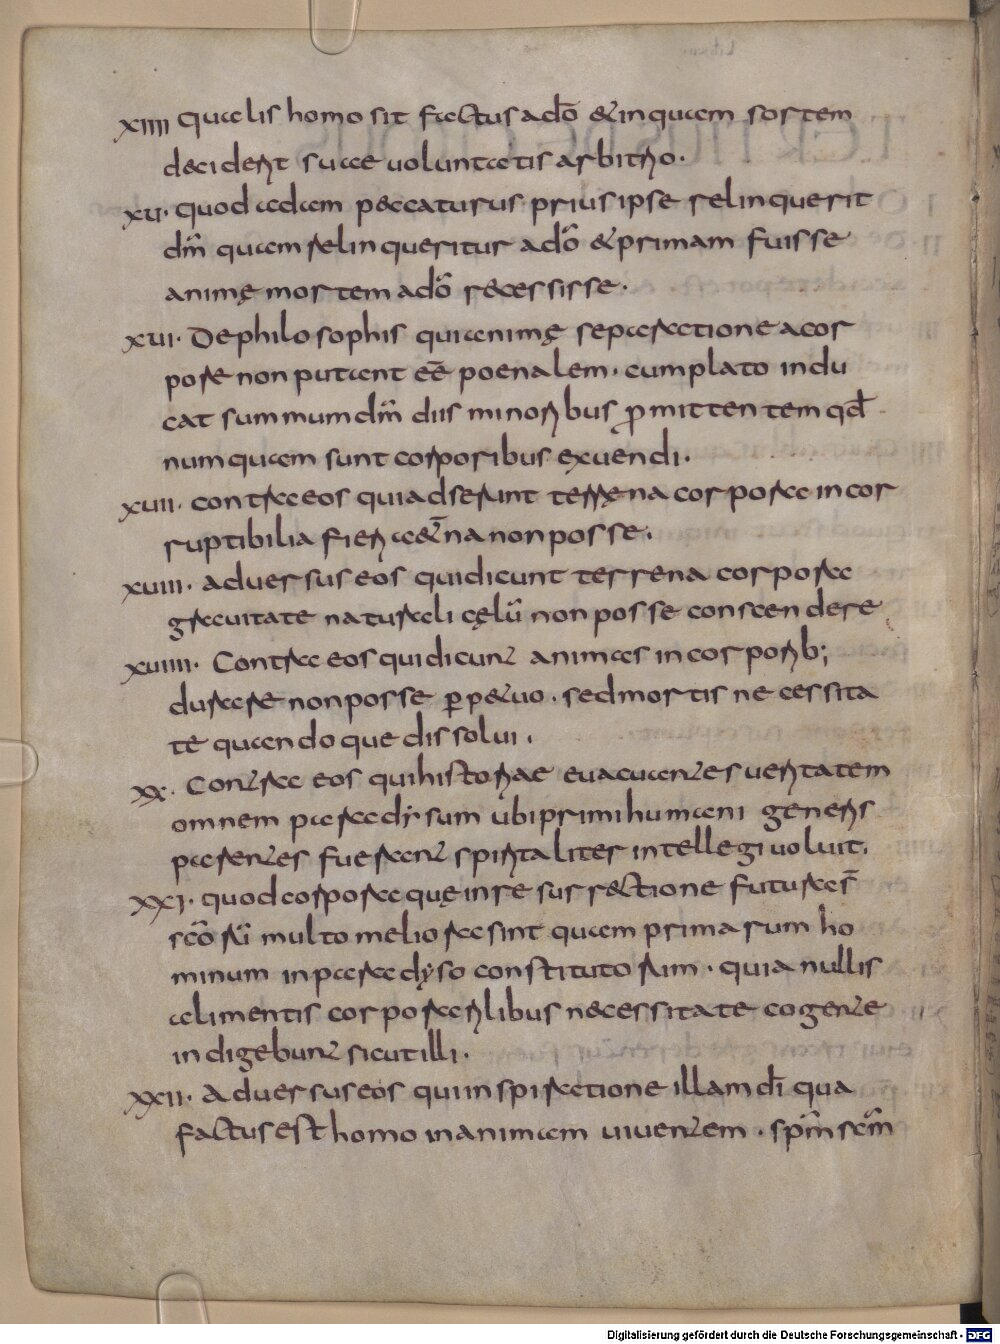 XIIII Qualis homo sit factus a dō & in quam sortem
deciderit suae uoluntatis arbitrio.
XV. quod adam peccaturus prius ipse relinquerit
dm̄ quam relinqueritur a dō & primam fuisse
animę mortem a dō recessisse.
XVI. De philosophis qui animę separationem a cor
pore non putant eē poenalem. cum plato indu
cat summum dm̄ diis minoribus ꝓmittentem qđ
numquam sunt corporibus exuendi.
XVII. contra eos qui adserunt terręna corpora incor
ruptibilia fieri & aet̄na non posse.
XVIII. aduersus eos qui dicunt terrena corpora
grauitate naturali cęlū non posse conscendere
XVIIII. Contra eos qui dicunt animas in corporib;
durare non posse ꝑp&uo. sed mortis necessita
te quandoque dissolui.
XX. Contra eos qui historiae euacuantes ueritatem
omnem paradysum ubi primi humani generis
parentes fuerant spiritaliter intellegi uoluit.
XXI. quod corpora quę in resurrectione futura s̄
scōrū multo meliora sint quam primarum ho
minum in paradyso constitutorum. quia nullis
alimentis corporalibus necessitate cogente
indigebunt sicut illi.
XXII. aduersus eos qui inspirationem illam dī qua
factus est homo in animam uiuentem. spm̄ scm̄
Digitalisierung gefördert durch die Deutsche Forschungsgemeinschaft - DFG